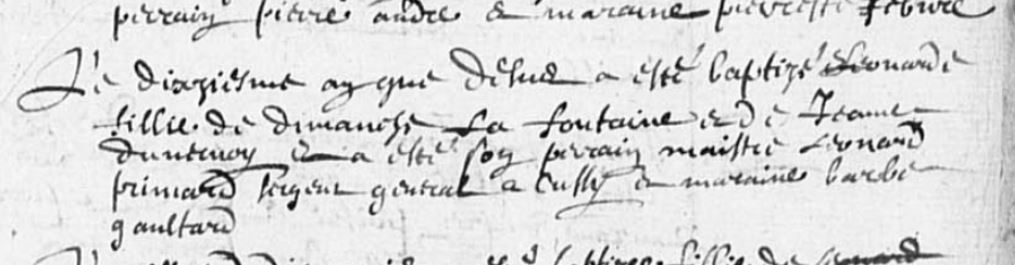 perrain pierre andre & maraine pierrette febvre
Le dixziesme an que desus a esté baptizé Leonarde
fillie de dimanche La fontaine et de Jeanne
& a esté son perrain maistre Leonard
primard sergent general a Cussy & maraine barbe
gaultard
baptizee fillie de